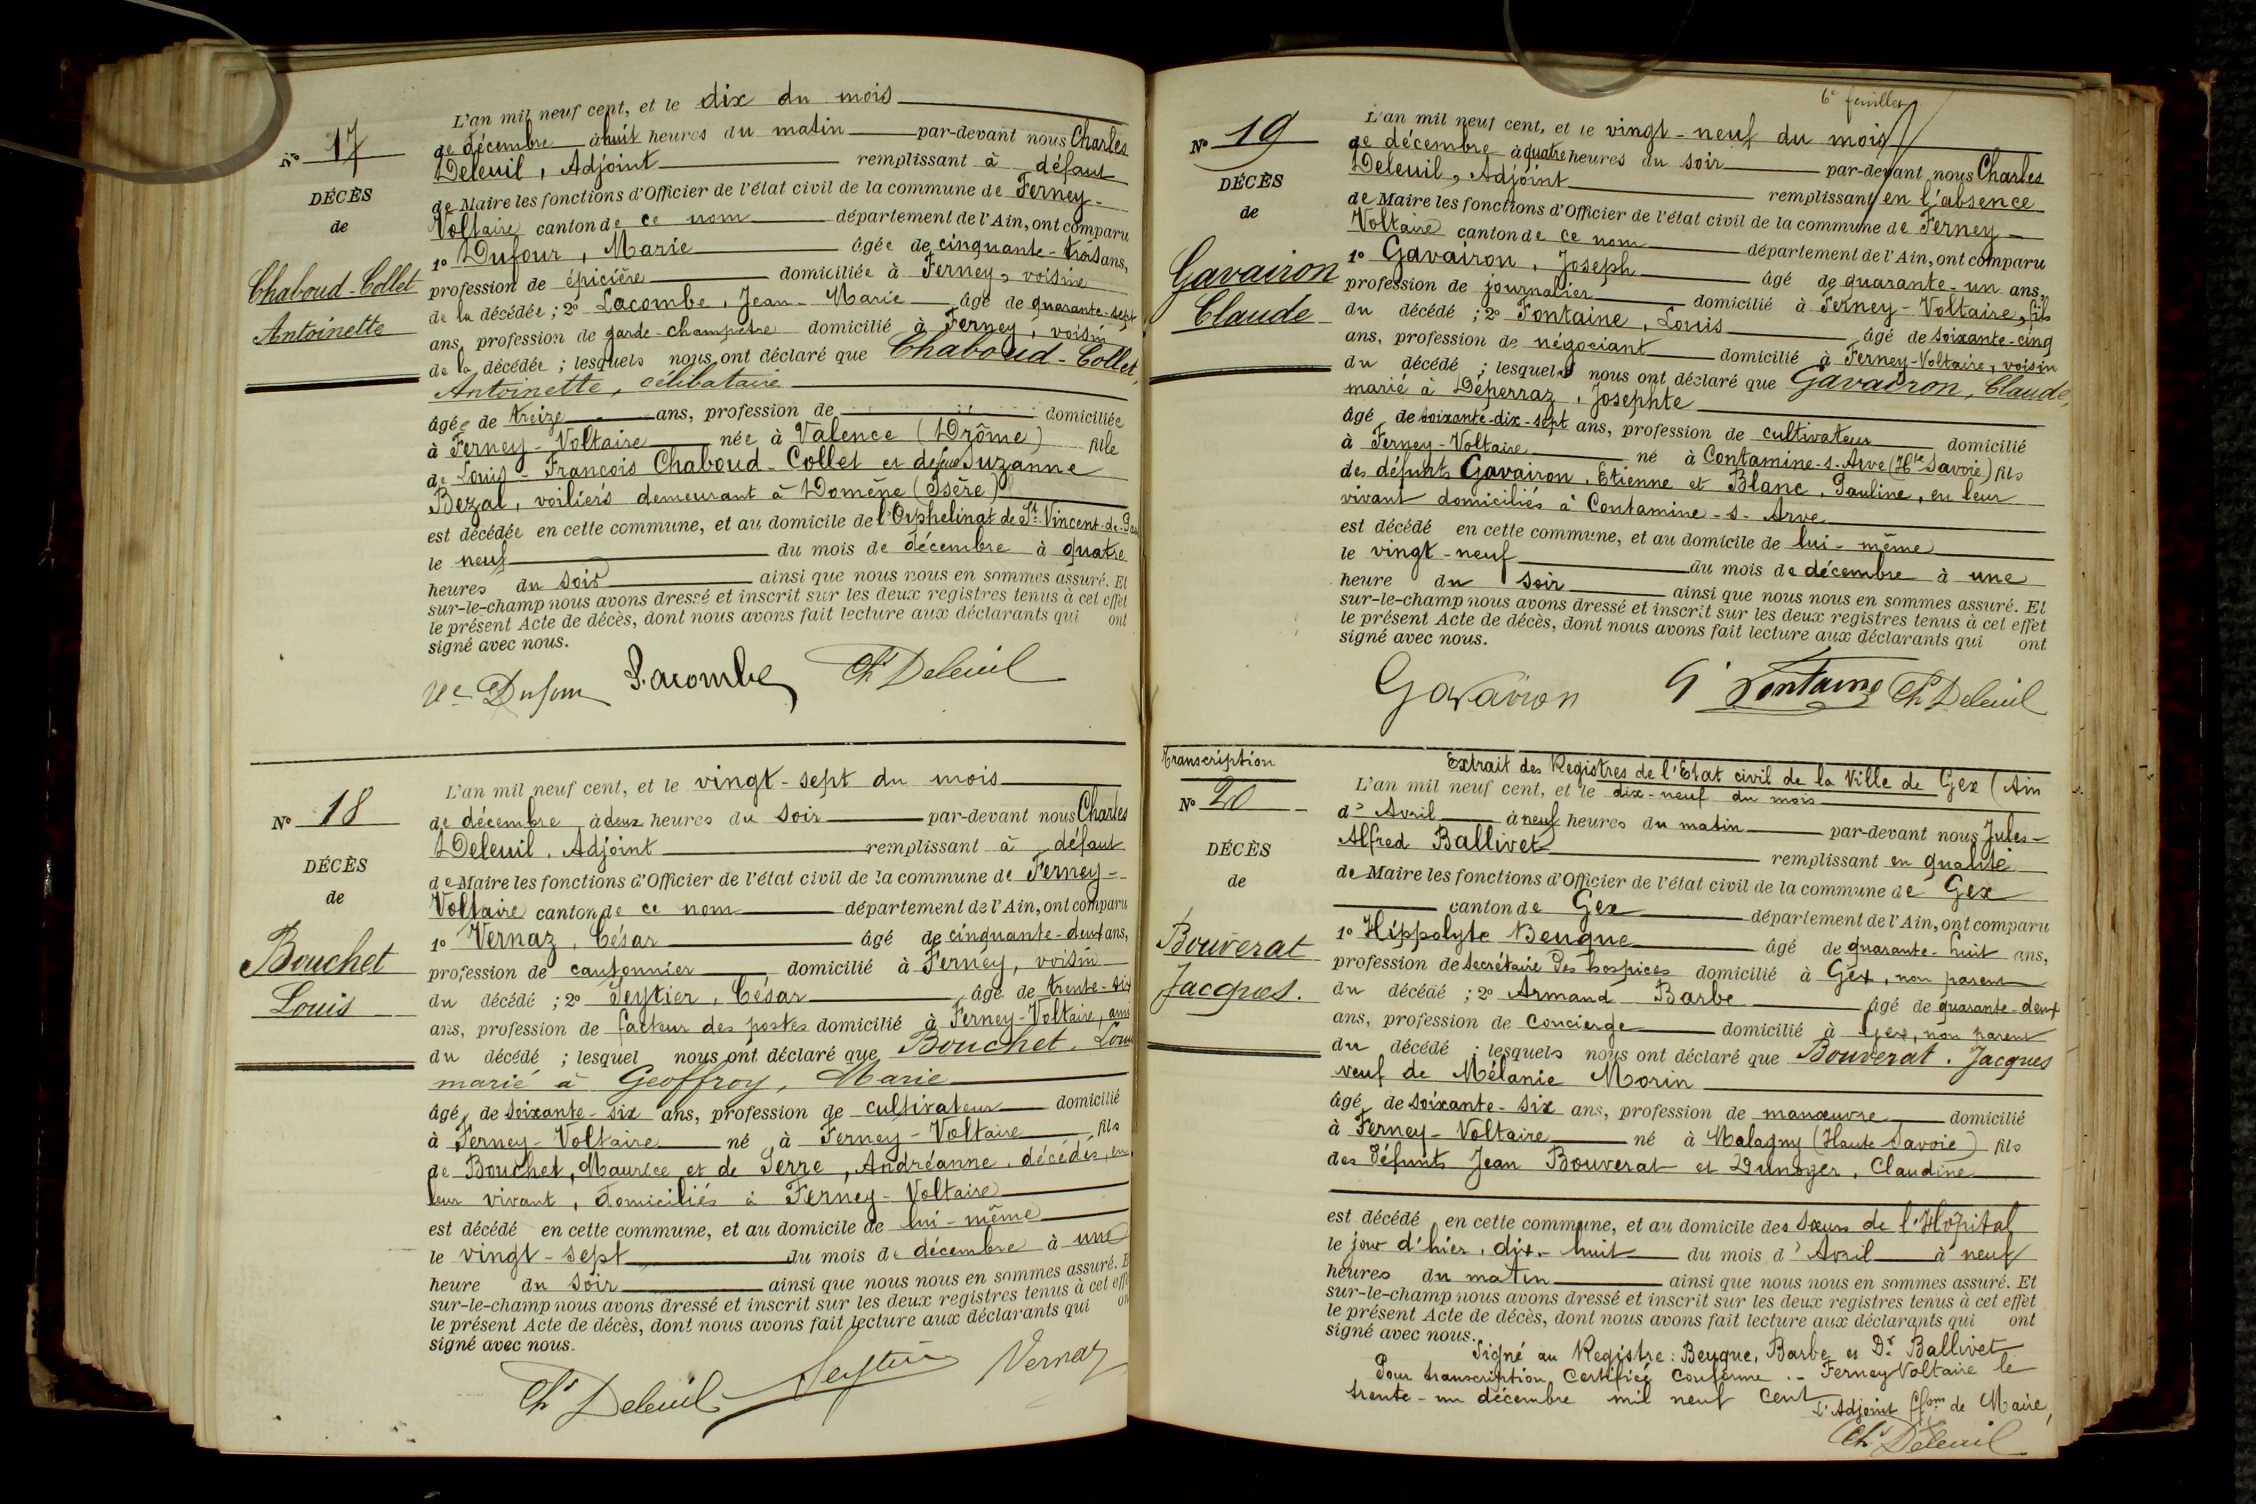 L'an mil neuf cent, et le dix du mois
de décembre à huit heures du matin par-devant nous Charles
Deleuil, Adjoint remplissant à défaut
de Maire les fonctions d'Officier de l'état civil de la commune de Ferney-
Voltaire canton de ce nom département de l'Ain, ont comparu
1o Dufour, Marie âgée de cinquante-trois ans,
profession de épicière domiciliée à Ferney, voisine
de la décédée ; 2o Lacombe, Jean-Marie âgé de quarante-sept
ans, profession de garde-champêtre domicilié à Ferney, voisin
de la décédée ; lesquels nous ont déclaré que Chaboud-Collet,
Antoinette, célibataire
âgée de treize ans, profession de domiciliée
à Ferney-Voltaire née à Valence (Drôme) fille
de Louis-François Chaboud-Collet et de feue Suzanne
Bezal, voiliers demeurant à Domène (Isère)
est décédée en cette commune, et au domicile de l'Orphelinat de St Vincent-de-Paul
le neuf du mois de décembre à quatre
heures du soir ainsi que nous nous en sommes assuré. Et
sur-le-champ nous avons dressé et inscrit sur les deux registres tenus à cet effet
le présent Acte de décès, dont nous avons fait lecture aux déclarants qui ont
signé avec nous.
Ve Dufour Lacombe Ch Deleuil
No 17
DÉCÈS
de
Chaboud-Collet
Antoinette
L'an mil neuf cent, et le vingt-sept du mois
de décembre à deux heures du soir par-devant nous Charles
Deleuil, Adjoint remplissant à défaut
de Maire les fonctions d'Officier de l'état civil de la commune de Ferney-
Voltaire canton de ce nom département de l'Ain, ont comparu
1o Vernaz, César âgé de cinquante-deux ans,
profession de cantonnier domicilié à Ferney, voisin
du décédé ; 2o Seytier, César âgé de trente-six
ans, profession de facteur des postes domicilié à Ferney-Voltaire, ami
du décédé ; lesquel nous ont déclaré que Bouchet, Louis
marié à Geoffroy, Marie
âgé de soixante-six ans, profession de cultivateur domicilié
à Ferney-Voltaire né à Ferney-Voltaire fils
de Bouchet, Maurice et de Serre, Andréanne, décédés, en
leur vivant, domiciliés à Ferney-Voltaire
est décédé en cette commune, et au domicile de lui-même
le vingt-sept du mois de décembre à une
heure du soir ainsi que nous nous en sommes assuré. E
sur-le-champ nous avons dressé et inscrit sur les deux registres tenus à cet eff
le présent Acte de décès, dont nous avons fait lecture aux déclarants qui on
signé avec nous.
Ch Deleuil Seytier Vernaz
No 18
DÉCÈS
de
Bouchet
Louis
6e feuillet
L'an mil neuf cent, et le vingt-neuf du mois
de décembre à quatre heures du soir par-devant nous Charles
Deleuil, Adjoint remplissant en l'absence
de Maire les fonctions d'Officier de l'état civil de la commune de Ferney-
Voltaire canton de ce nom département de l'Ain, ont comparu
1o Gavairon, Joseph âgé de quarante-un ans,
profession de journalier domicilié à Ferney-Voltaire, fils
du décédé ; 2o Fontaine, Louis âgé de soixante-cinq
ans, profession de négociant domicilié à Ferney-Voltaire, voisin
du décédé ; lesquels nous ont déclaré que Gavairon, Claude,
marié à Déperraz, Josephte
âgé de soixante-dix-sept ans, profession de cultivateur domicilié
à Ferney-Voltaire né à Contamine-s-Arve (Hte Savoie) fils
des défunts Gavairon, Etienne et Blanc, Pauline, en leur
vivant domiciliés à Contamine-s-Arve
est décédé en cette commune, et au domicile de lui-même
le vingt-neuf du mois de décembre à une
heure du soir ainsi que nous nous en sommes assuré. Et
sur-le-champ nous avons dressé et inscrit sur les deux registres tenus à cet effet
le présent Acte de décès, dont nous avons fait lecture aux déclarants qui ont
signé avec nous.
Gavairon Fontaine Ch Deleuil
No 19
DÉCÈS
de
Gavairon
Claude
Transcription
Extrait des Registres de l'Etat civil de la Ville de Gex (Ain
L'an mil neuf cent, et le dix-neuf du mois
d'Avril à neuf heures du matin par-devant nous Jules-
Alfred Ballivet remplissant en qualité
de Maire les fonctions d'Officier de l'état civil de la commune de Gex
canton de Gex département de l'Ain, ont comparu
1o Hippolyte Beugue âgé de quarante-huit ans,
profession de secrétaire des hospices domicilié à Gex, non parent
du décédé ; 2o Armand Barbe âgé de quarante-deux
ans, profession de concierge domicilié à Gex, non parent
du décédé ; lesquels nous ont déclaré que Bouverat, Jacques
veuf de Mélanie Morin
âgé de soixante-six ans, profession de manœuvre domicilié
à Ferney-Voltaire né à Malagny (Haute Savoie) fils
des défunts Jean Bouverat et Dunoyer, Claudine
est décédé en cette commune, et au domicile des sœurs de l'Hôpital
le jour d'hier, dix-huit du mois d'Avril à neuf
heures du matin ainsi que nous nous en sommes assuré. Et
sur-le-champ nous avons dressé et inscrit sur les deux registres tenus à cet effet
le présent Acte de décès, dont nous avons fait lecture aux déclarants qui ont
signé avec nous.
Signé au Registre : Beugue, Barbe et Dr Ballivet
Pour transcription Certifiée Conforme .- Ferney Voltaire le
trente-un décembre mil neuf cent
L'Adjoint ffons de Maire,
Ch Deleuil
No 20
DÉCÈS
de
Bouverat
Jacques.